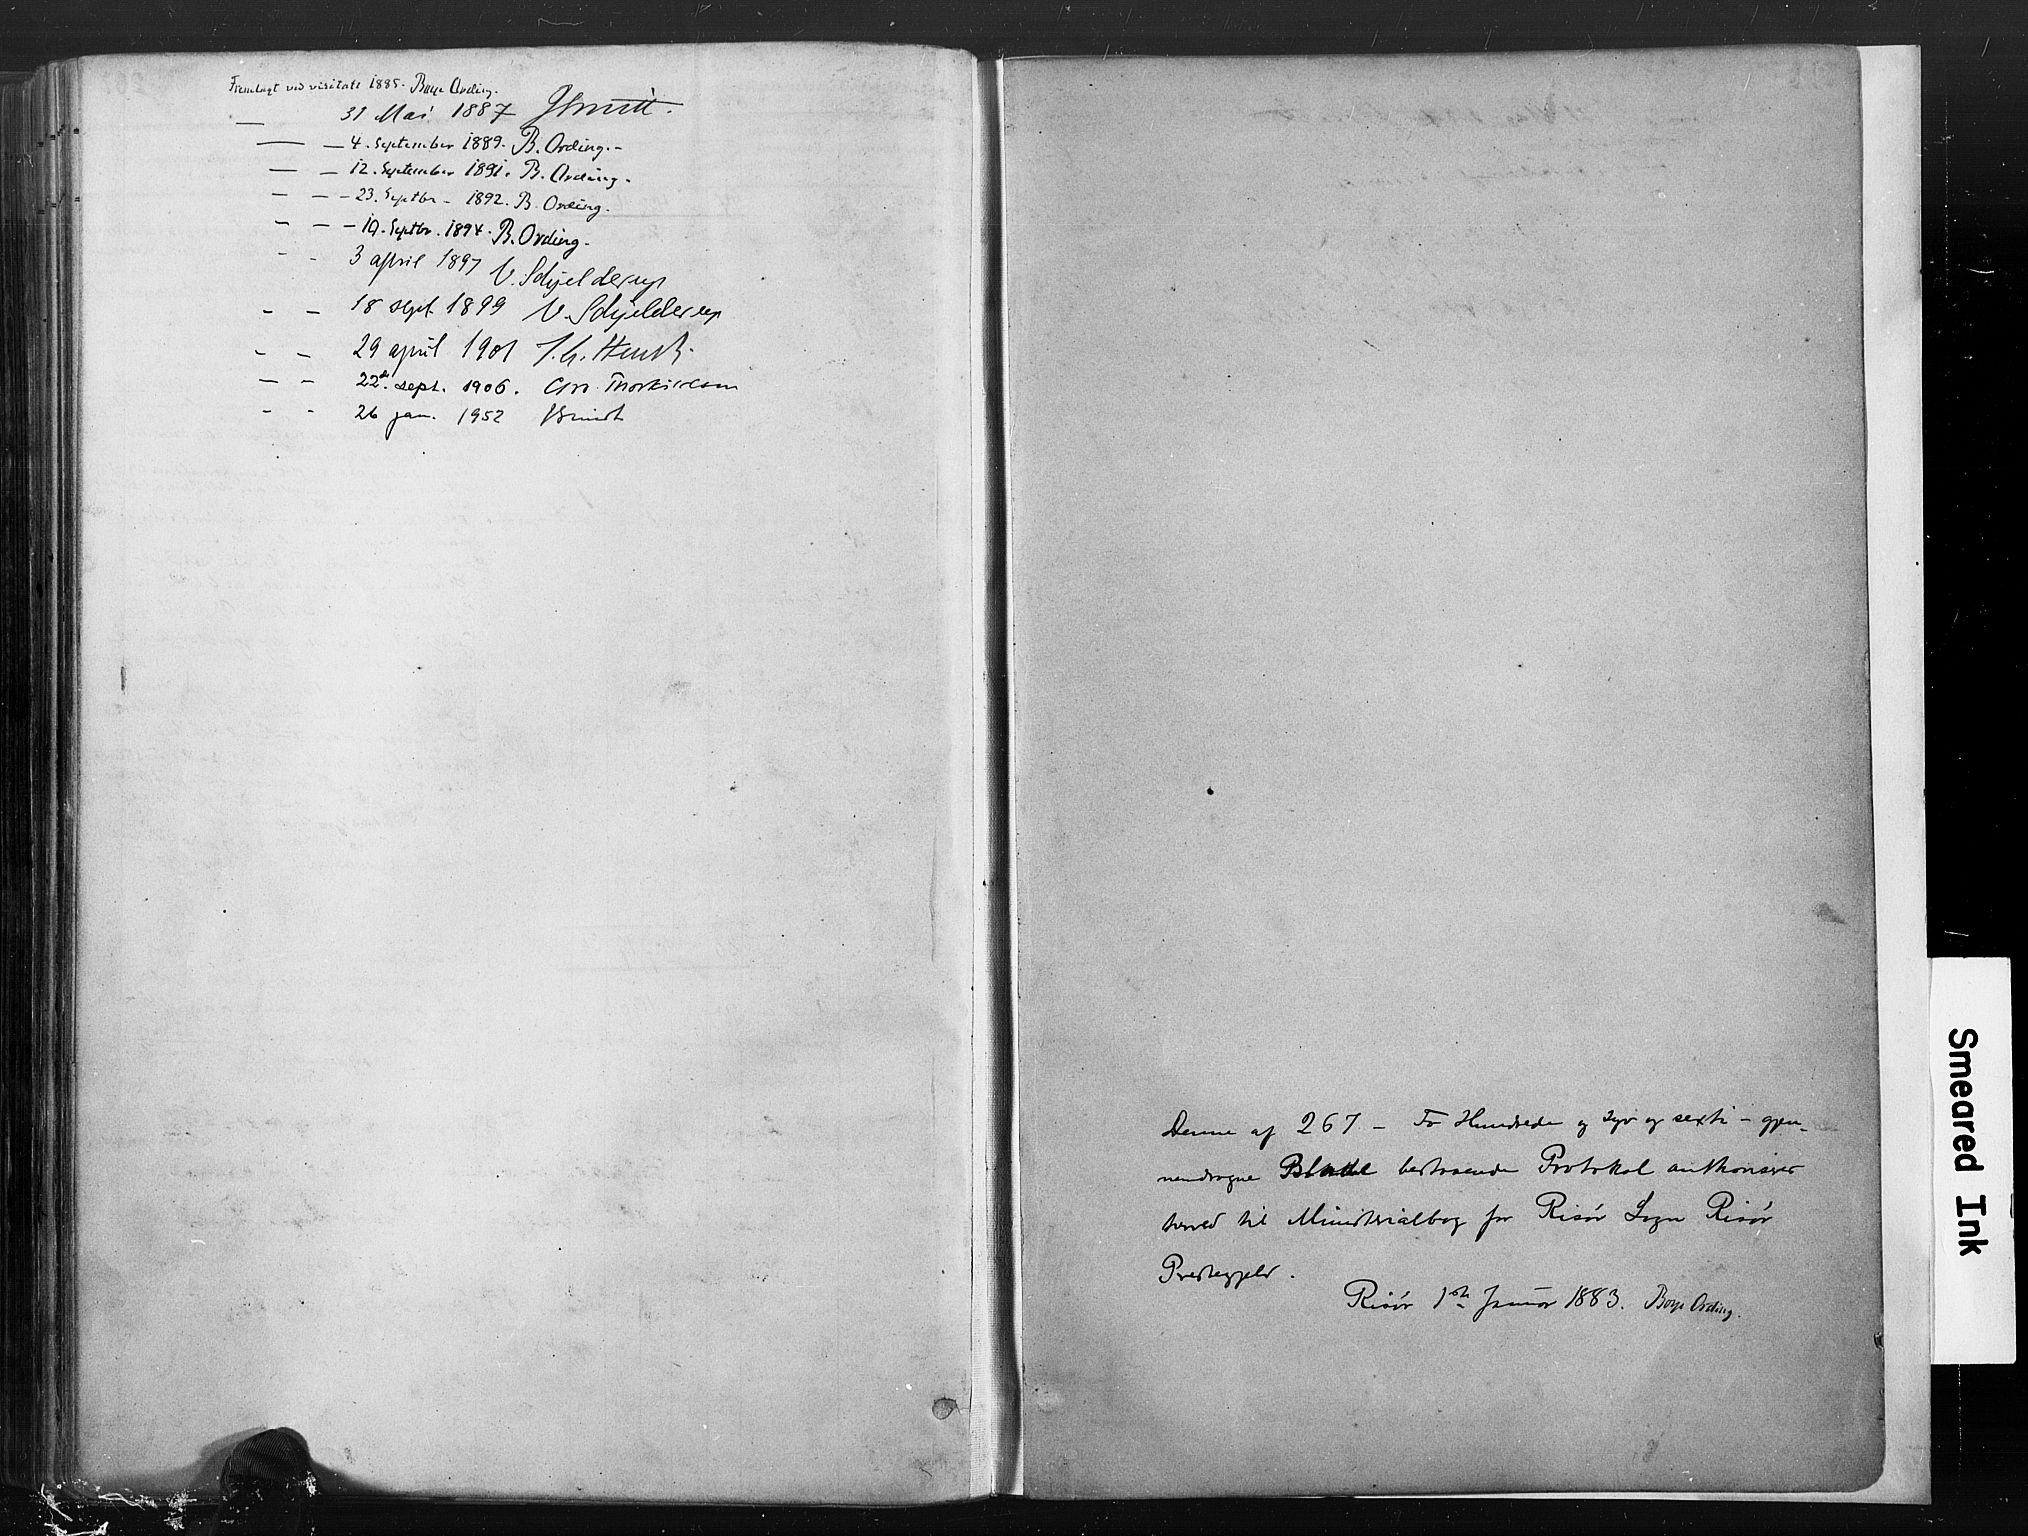 Fremlagt ved visitats 1885. Boye Ording.
— 31 Mai 1887 JSmitt.
— — 4. September 1889. B. Ording.-
— — 12. September 1891. B. Ording.
— — - 23. Septbr - 1892. B. Ording.
- — - 19. Septbr. 1894. B. Ording.
- - 3 april 1897 V. Schjelderup
- - 18 sept. 1899 V. Schjelderup
- - 29 april 1901
— - 22de. sept. 1906.
- - 26 jan. 1952 JSmidt
Denne af 267 - To Hundrede og syv og sexti - gjen-
nemdragne Blade bestaaende Protokol authoriseres
herved til Ministerialbog for Risør Sogn Risør
Prestegjeld.
Risør 1ste Januar 1883. Boye Ording.
Smeared Ink